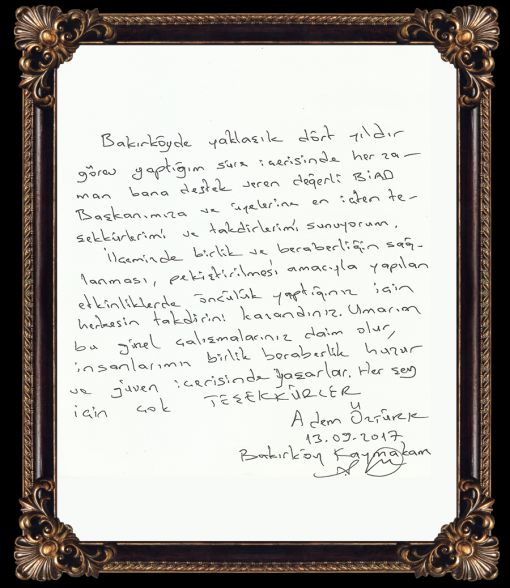 Bakırköyde yaklaşık dört yıldır
görev yaptığım süre içerisinde her za-
man bana destek veren değerli BİAD
Başkanımıza ve üyelerine en içten te-
şekkürlerimi ve takdirlerimi sunuyorum.
İlçeminde birlik ve beraberliğin sağ-
lanması, pekiştirilmesi amacıyla yapılan
etkinliklerde öncülük yaptığınız için
herkesin takdirini kazandınız. Umarım
bu güzel çalışmalarınız daim olur,
insanlarımın birlik beraberlik huzur
ve güven içerisinde yaşarlar. Her şey
için çok TEŞEKKÜRLER
Adem Öztürk
13.09.2017
Bakırköy Kaymakamı